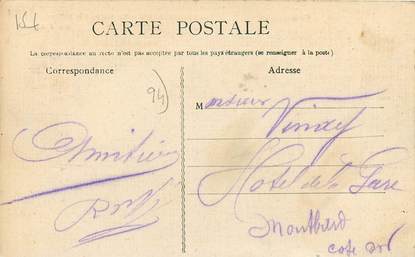 15€
CARTE POSTALE
La correspondance au recto n'est pas acceptée par tous les pays étrangers (se renseigner à la poste)
Correspondance
Adresse
94)
Monsieur
Hotel de la Gare
Montbard
cote d'or